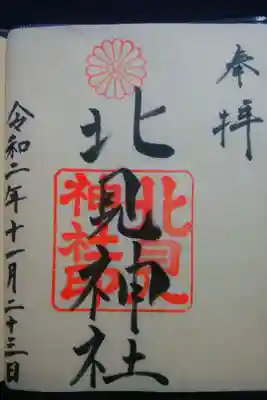 奉拝
北見神社
北見神社印
令和二年十一月二十三日